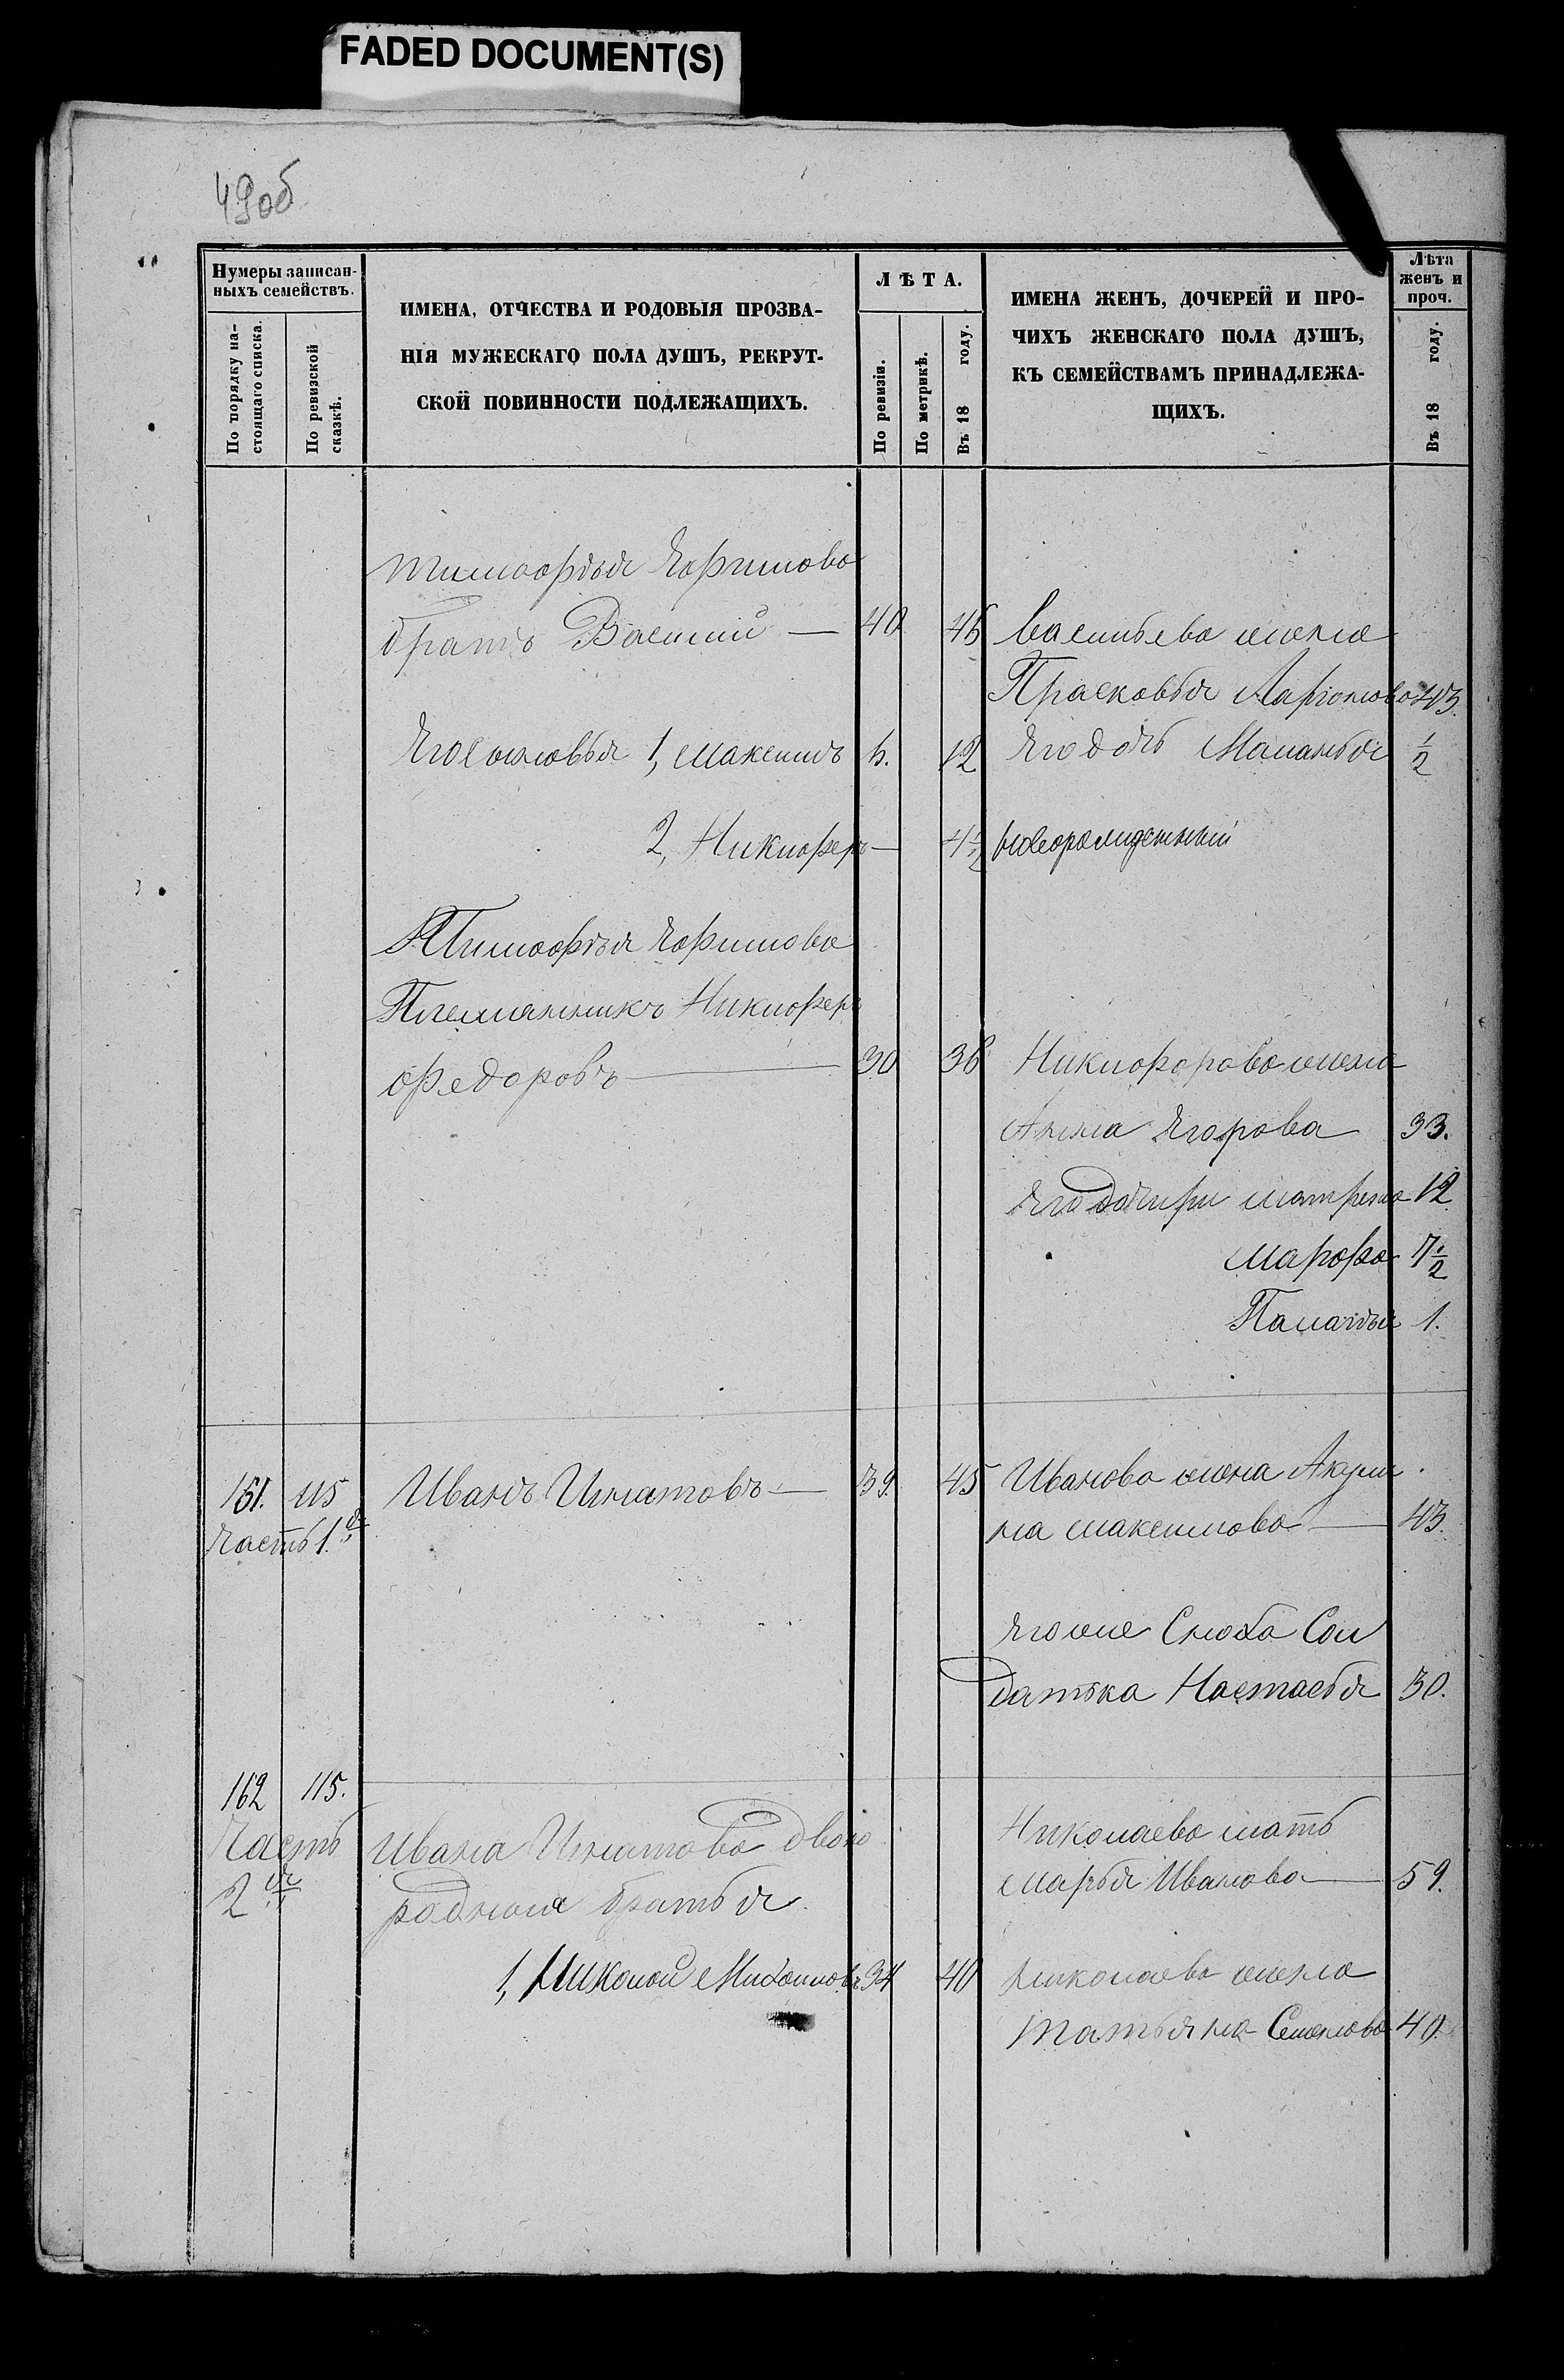 FADED DOCUMENT(S)
49об
Нумеры записан-
ныхъ семействъ.
По порядку на-
стоящаго списка.
По ревизской
сказкѣ.
ИМЕНА, ОТЧЕСТВА И РОДОВЫЯ ПРОЗВА-
НІЯ МУЖЕСКАГО ПОЛА ДУШЪ, РЕКРУТ-
СКОЙ ПОВИННОСТИ ПОДЛЕЖАЩИХЪ.
ЛѢТА.
По ревизіи.
По метрикѣ.
Въ 18 году.
ИМЕНА ЖЕНЪ, ДОЧЕРЕЙ И ПРО-
ЧИХЪ ЖЕНСКАГО ПОЛА ДУШЪ,
КЪ СЕМЕЙСТВАМЪ ПРИНАДЛЕЖА-
ЩИХЪ.
Лѣта
женъ и
проч.
Въ 18 году.
Тимофѣя Ефимова
братъ Василий — 40 46 Васильева жена
Прасковья Ларіонова 43.
Его сыновья 1, Максимъ 6. 12 Его дочь Маланья 1/2
2, Никифоръ — 4 1/2
Тимофѣя Ефимова
Племянникъ Никифоръ
Федоровъ — 30 36 Никифорова жена
Анна Егорова 33.
Его дочери Матрена 12
Марфа 7 1/2
Палагѣя 1.
161. 115 Иванъ Игнатовъ — 39. 45 Иванова жена Акули
Часть 1.я на Максимова — 43.
Его же Сноха Сол
датька Настасья 30.
162 115.
Часть Ивана Игнатова двою Николаева мать
2я родныя братья Марья Иванова — 59.
1, Николай Михайловъ 34 40 Николаева жена
Татьяна Семенова 40.